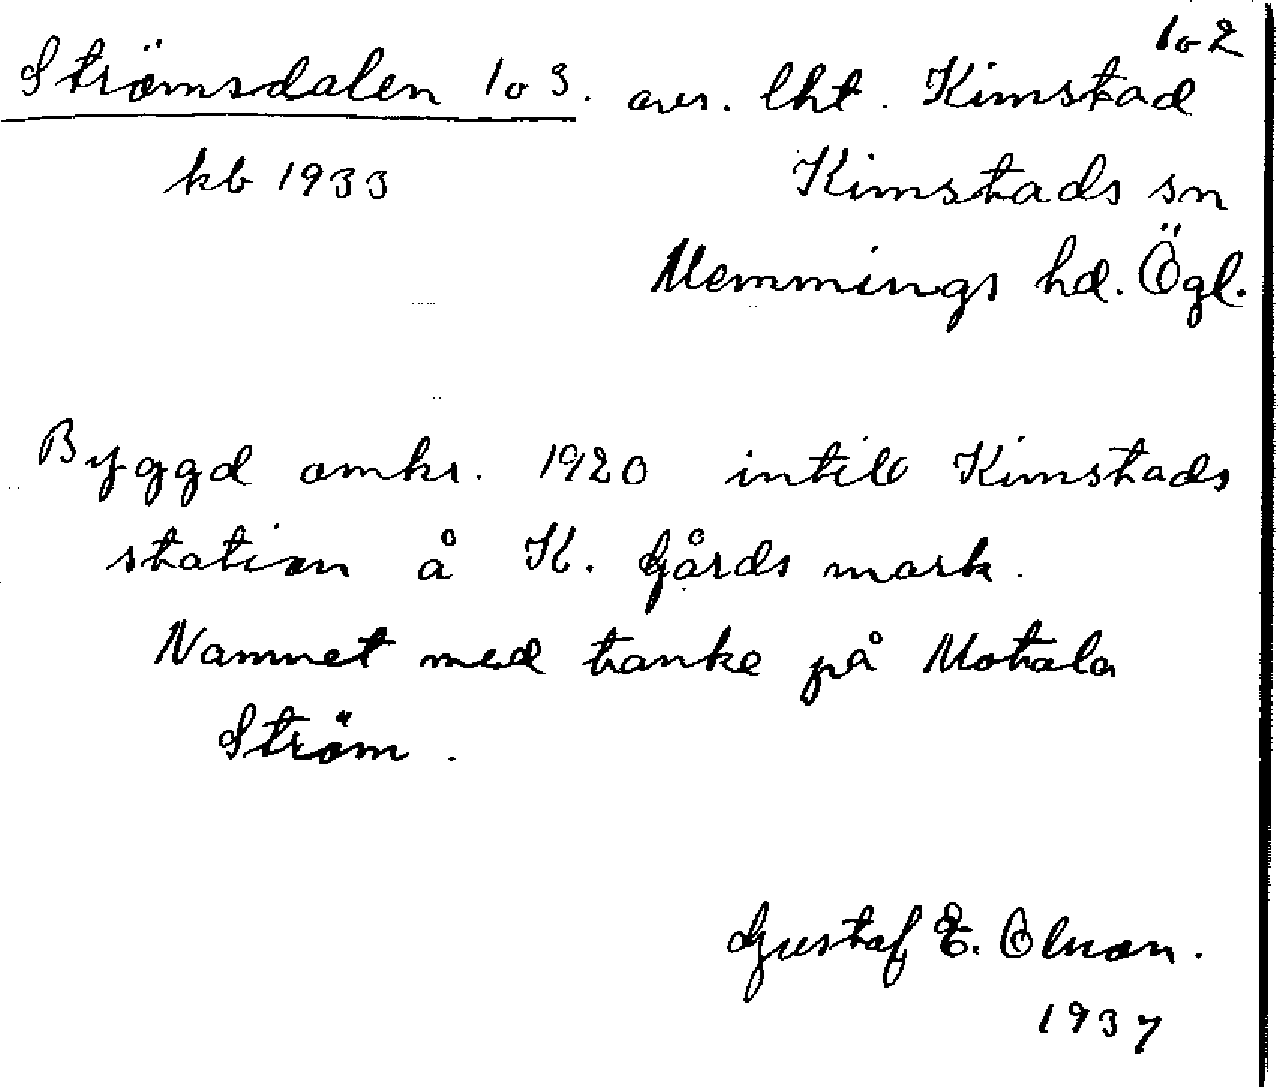 1o2
Strömsdalen 1o3. avs. lht. Kimstad
kb 1933 Kimstads sn
Memmings hd. Ögl.
Byggd omkr. 1920 intill Kimstads
station å K. Gårds mark.
Namnet med tanke på Motala
Ström.
Gustaf E. Olsson.
1937